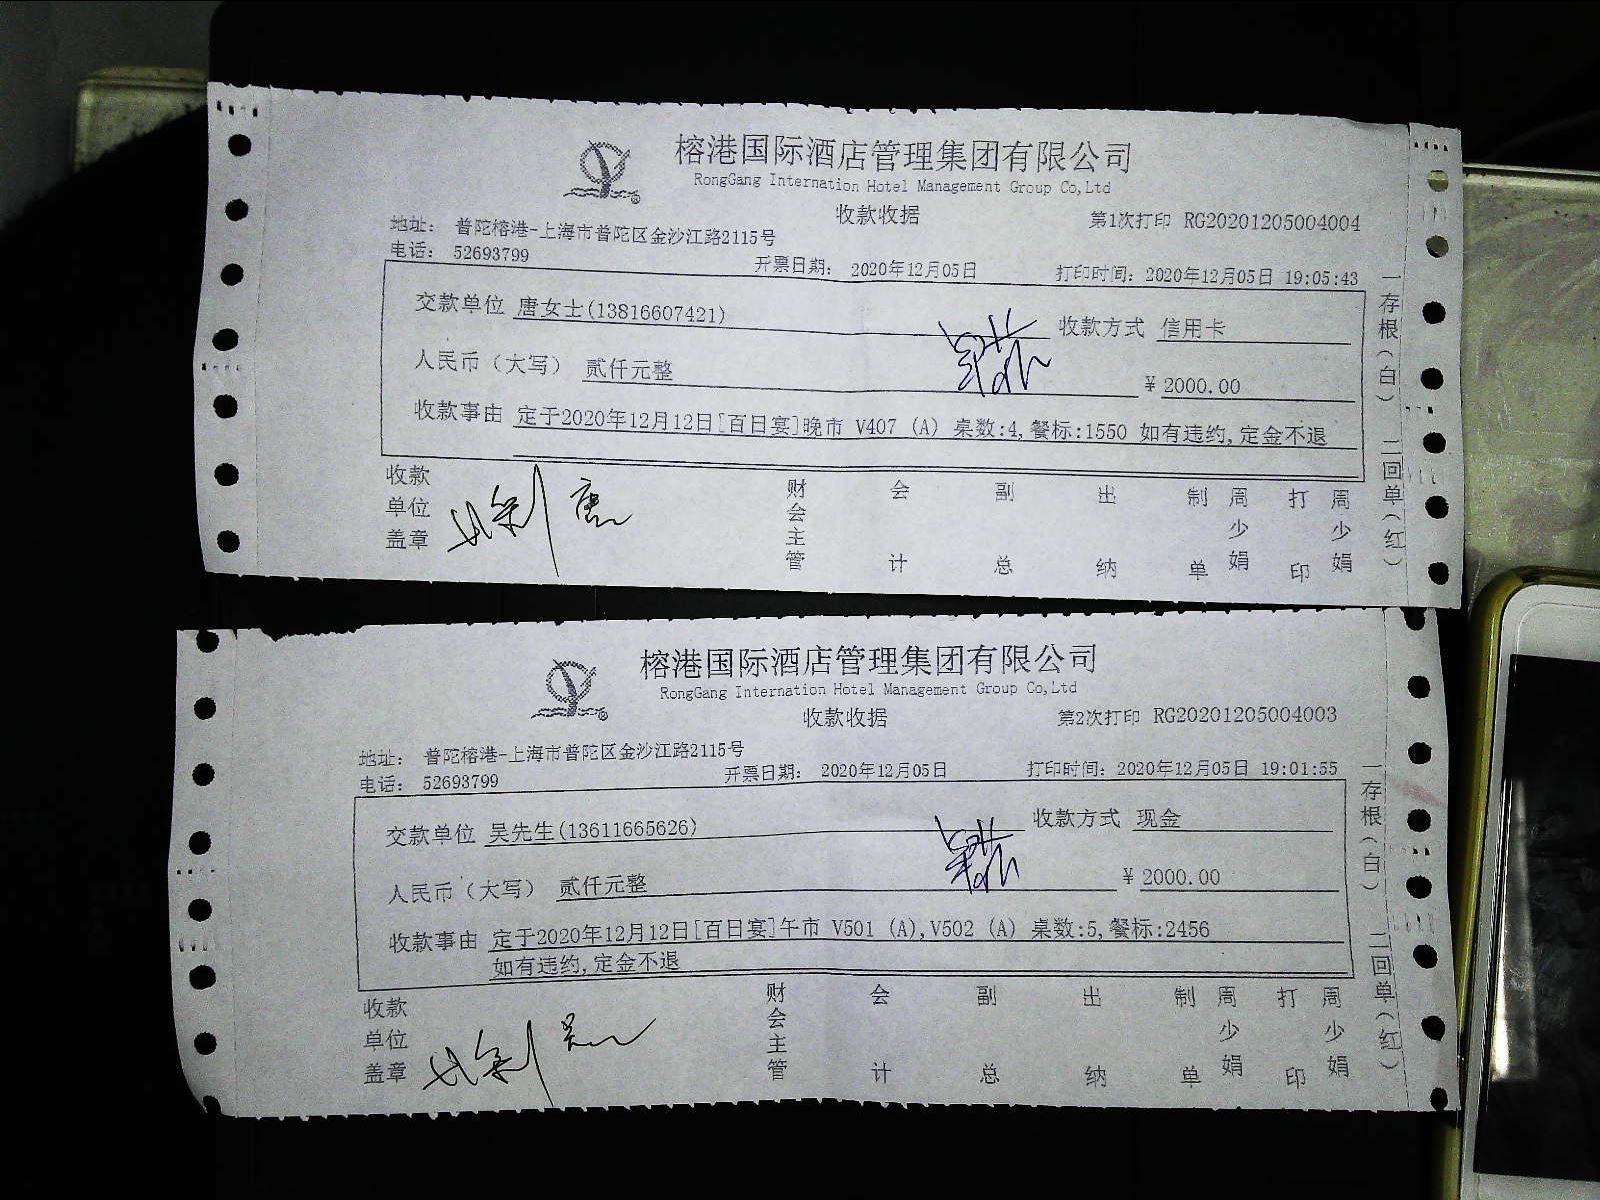 榕港国际酒店管理集团有限公司
RongGang Internation Hotel Management Group Co,Ltd
收款收据
第1次打印 RG20201205004004
地址： 普陀榕港-上海市普陀区金沙江路2115号
电话： 52693799
开票日期： 2020年12月05日
打印时间：2020年12月05日 19:05:43
交款单位 唐女士(13816607421)
收款方式 信用卡
人民币（大写） 贰仟元整
￥2000.00
收款事由 定于2020年12月12日[百日宴]晚市 V407 (A) 桌数:4,餐标:1550 如有违约,定金不退
收款单位盖章
唐
财会主管
会计
副总
出纳
制单
周少娟
打印
周少娟
一存根(白) 二回单(红)
榕港国际酒店管理集团有限公司
RongGang Internation Hotel Management Group Co,Ltd
收款收据
第2次打印 RG20201205004003
地址： 普陀榕港-上海市普陀区金沙江路2115号
电话： 52693799
开票日期： 2020年12月05日
打印时间：2020年12月05日 19:01:55
交款单位 吴先生(13611665626)
收款方式 现金
人民币（大写） 贰仟元整
￥2000.00
收款事由 定于2020年12月12日[百日宴]午市 V501 (A),V502 (A) 桌数:5,餐标:2456
如有违约,定金不退
收款单位盖章
财会主管
会计
副总
出纳
制单
周少娟
打印
周少娟
一存根(白) 二回单(红)